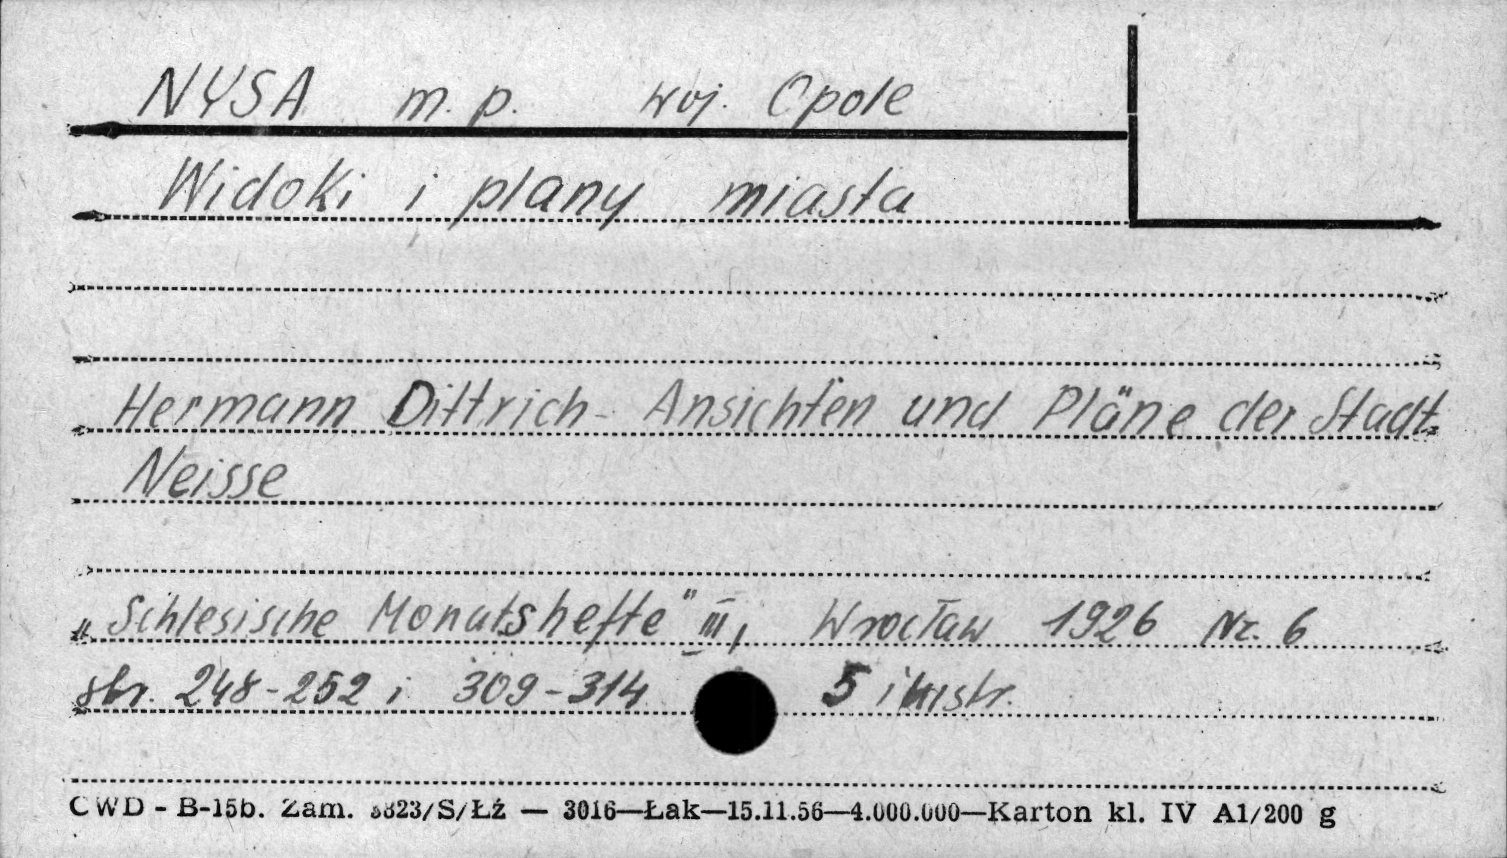 NYSA m. p. woj. Opole
Widoki i plany miasta
Hermann Dittrich - Ansichten und Pläne der Stadt
Neisse
„Schlesische Monatshefte" III, Wrocław 1926 Nr. 6
str. 248-252 i 309-314 5 ilustr.
CWD - B-15b. Zam. 3823/S/Łź — 3016—Łak—15.11.56—4.000.000—Karton kl. IV A1/200 g